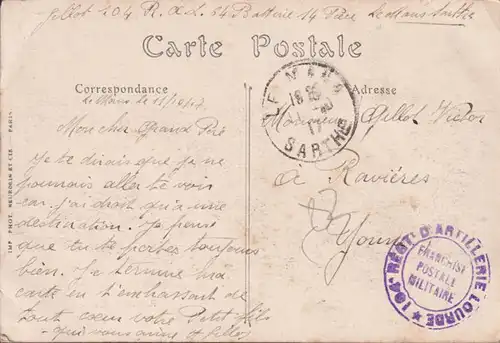 Gillot 104 R. A. L. 54 Batterie 14 Pièce Le Mans Sarthe
Carte Postale
Correspondance
Adresse
Le Mans le 11/10/17
LE MANS
SARTHE
17
Mon cher Grand Père
Je te dirais que je ne
pouvais aller te voir
car j'ai droit qu'a une
destination. Je pense
que tu te portes toujours
bien. Je termine ma
carte en t'embrassant de
tout cœur votre Petit fils
qui vous aime Gillot
Monsieur Gillot Victor
à Ravières
Yonne
104e RÉGt D'ARTILLERIE LOURDE
FRANCHISE
POSTALE
MILITAIRE
IMP. PHOT. NEURDEIN ET CIE PARIS